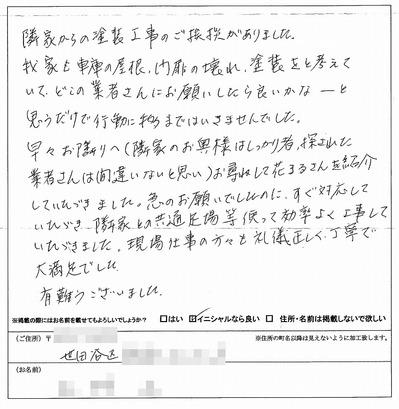 隣家からの塗装工事のご挨拶がありました。
我家も車庫の屋根、内部の壊れ、塗装をと考えて
いて、どこの業者さんにお願いしたら良いかな―と
思うだけで行動に移るまではいきませんでした。
早々お隣りへ(隣家のお奥様はしっかり者、探された
業者さんは間違いないと思い)お尋ねして花まるさんを紹介
していただきました。急のお願いでしたのに、すぐ対応して
いただき、隣家との共通足場等使って効率よく工事して
いただきました。現場仕事の方々も礼儀正しく、丁寧で
大満足でした。
有難うございました。
※掲載の際にはお名前を載せてもよろしいでしょうか? □はい ☑イニシャルなら良い □ 住所・名前は掲載しないで欲しい
(ご住所) 〒 ※住所の町名以降は見えないように加工致します。
世田谷区
(お名前)